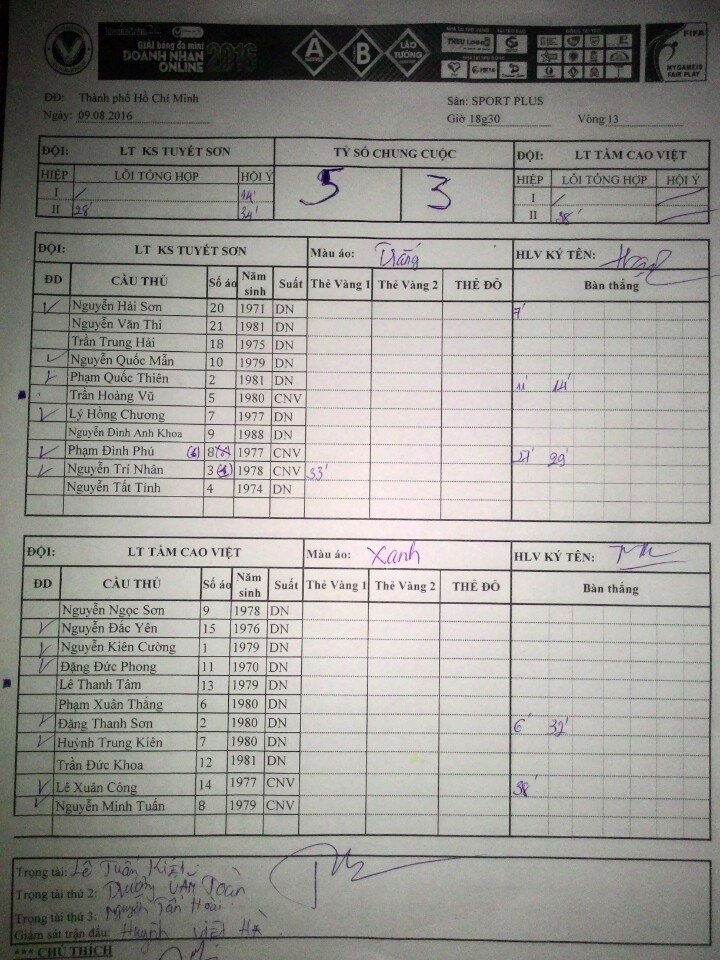 GIẢI bóng đá mini
DOANH NHÂN
ONLINE 2016
A B LÃO TƯỚNG
FIFA
MY GAME IS
FAIR PLAY
ĐĐ: Thành phố Hồ Chí Minh Sân: SPORT PLUS
Ngày: 09.08.2016 Giờ 18g30 Vòng 13
ĐỘI: LT KS TUYẾT SƠN TỶ SỐ CHUNG CUỘC ĐỘI: LT TẦM CAO VIỆT
HIỆP LỖI TỔNG HỢP HỘI Ý 5 3 HIỆP LỖI TỔNG HỢP HỘI Ý
I / 14' I /
II 28' 34' II 38'
ĐỘI: LT KS TUYẾT SƠN Màu áo: Trắng HLV KÝ TÊN:
ĐD CẦU THỦ Số áo Năm sinh Suất Thẻ Vàng 1 Thẻ Vàng 2 THẺ ĐỎ Bàn thắng
Nguyễn Hải Sơn 20 1971 DN 7'
Nguyễn Văn Thi 21 1981 DN
Trần Trung Hải 18 1975 DN
Nguyễn Quốc Mẫn 10 1979 DN
Phạm Quốc Thiên 2 1981 DN 11' 14'
Trần Hoàng Vũ 5 1980 CNV
Lý Hồng Chương 7 1977 DN
Nguyễn Đình Anh Khoa 9 1988 DN
Phạm Đình Phú 8 1977 CNV 29'
Nguyễn Trí Nhân 3 1978 CNV 33'
Nguyễn Tất Tính 4 1974 DN
ĐỘI: LT TẦM CAO VIỆT Màu áo: Xanh HLV KÝ TÊN:
ĐD CẦU THỦ Số áo Năm sinh Suất Thẻ Vàng 1 Thẻ Vàng 2 THẺ ĐỎ Bàn thắng
Nguyễn Ngọc Sơn 9 1978 DN
Nguyễn Đắc Yên 15 1976 DN
Nguyễn Kiên Cường 1 1979 DN
Đặng Đức Phong 11 1970 DN
Lê Thanh Tâm 13 1979 DN
Phạm Xuân Thắng 6 1980 DN
Đặng Thanh Sơn 2 1980 DN 6' 32'
Huỳnh Trung Kiên 7 1980 DN
Trần Đức Khoa 12 1981 DN
Lê Xuân Công 14 1977 CNV 38'
Nguyễn Minh Tuấn 8 1979 CNV
Trọng tài: Lê Tuấn Kiệt
Trọng tài thứ 2: Trương Văn Toàn
Trọng tài thứ 3: Nguyễn Tấn Hoài
Giám sát trận đấu: Huỳnh Việt Hà
*** CHÚ THÍCH